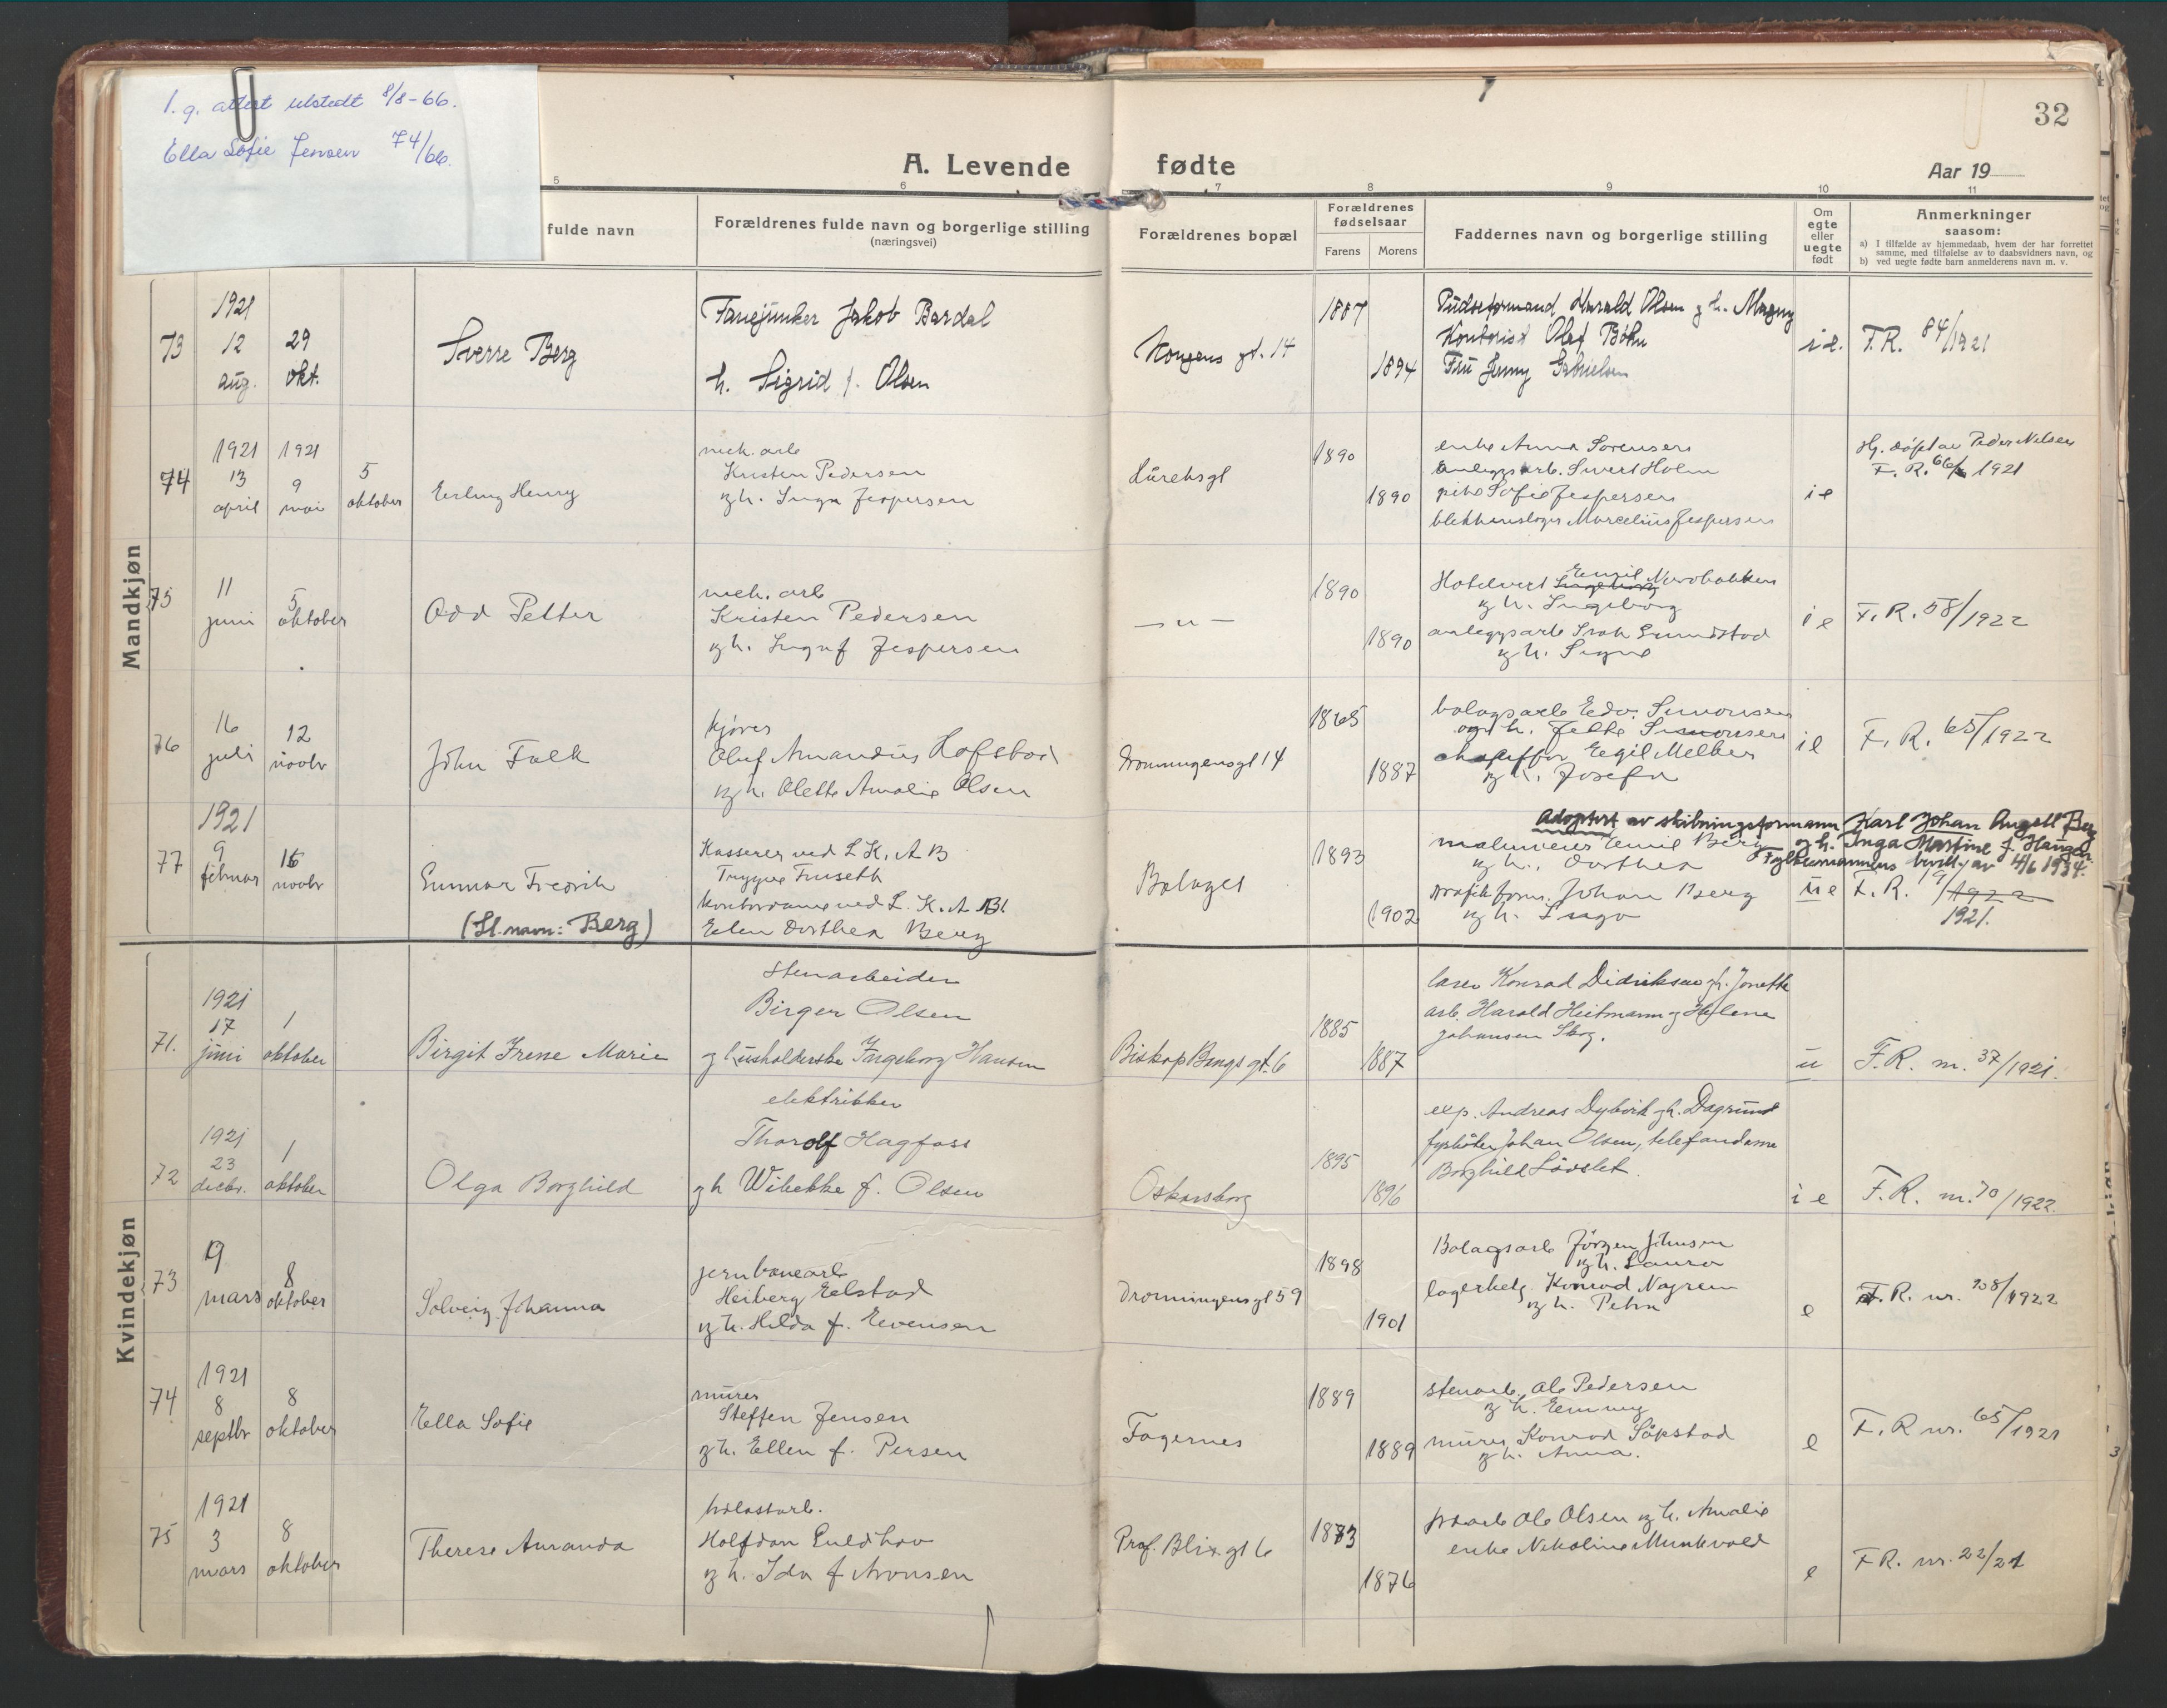 I. g. attest utstedt 8/8-66.
Ella Sofie Jensen 74/66.
32
A. Levende fødte
Aar 19
5 6 7 8 9 10 11
fulde navn
Forældrenes fulde navn og borgerlige stilling
(næringsvei)
Forældrenes bopæl
Forældrenes fødselsaar
Farens Morens
Faddernes navn og borgerlige stilling
Om egte eller uegte født
Anmerkninger
saasom:
a) I tilfælde av hjemmedaab, hvem der har forrettet samme, med tilføielse av to daabsvidners navn, og
b) ved uegte fødte barn anmelderens navn m. v.
Mandkjøn
73
1921
12
aug.
29
okt.
Sverre Berg
Fanejunker Jakob Bardal
h. Sigrid f. Olsen
Kongens gt. 14
1887
1894
Pudseformand Harald Olsen g h. Magny
Kontorist Olaf Bøhn
Fru Jenny Gabrielsen
ie.
F.R. 84/1921
74
1921
13
april
1921
9
mai
5
oktober
Erling Henry
mek. arb
Kristen Pedersen
og h. Inga Jespersen
1890
1890
enke Anna Sorensen
anleggsarb. Sivert Holm
pike Sofie Jespersen
blikkenslager Marcelius Jespersen
ie
Hj. døpt av Peder Nilsen
F. R. 66/1921
75
11
juni
5
oktober
Odd Petter
mek. arb
Kristen Pedersen
og h. Inga f Jespersen
— " —
1890
1890
Hotelvert Emil Nordbakken
og h. Ingeborg
anleggsarb Grundstad
og h. Signe
ie
F. R. 58/1922
76
16
juli
12
novbr
John Falk
kjører
Oluf Amandus Hofstad
og h. Olette Amalie Olsen
Dronningensgt 14
1865
1887
bolagsarb Edv. Simonsen
og h. Jette Simonsen
chauffør Egil Melbye
og h. Josefa
ie
F. R. 65/1922
77
1921
9
februar
15
novbr
Gunnar Fredrik
(Sl. navn: Berg)
Kasserer ved L. K. A B
Trygve Fuseth
kontordame ved L. K. A B.
Ellen Dorthea Berg
Bolaget
1893
1902
Adoptert av skibningsformann Karl Johan Angell Berg
og h. Inga Martine f. Hanger.
Fylkesmannens bevill. av 4/6 1934.
malmveier Emil Berg
og h. Dorthea
trafikform. Johan Berg
og h. Inga
ue
F. R. 19/1922
1921.
Kvindekjøn
71.
1921
17
juni
1
oktober
Birgit Irene Marie
Stenarbeider
Birger Olsen
g husholderske Ingeborg Hansen
Biskop Bangs gt. 6
1885
1887
laser Konrad Didriksen g h. Jonette
arb. Harald Heitmann g Helene
Johansen Skog.
u
F.R. nr. 37/1921.
72
1921
23
decbr.
1
oktober
Olga Borghild
elektriker
Thorolf Hagfoss
g h Wibekke f. Olsen
Oskarsborg
1895
1896
exp. Andreas Dybvik g h. Dagrund
fyrbøter Johan Olsen, telefondame
Borghild Løvslet.
ie
F. R. nr. 70/1922
73
19
mars
8
oktober
Solveig Johanna
jernbanearb
Heiberg Elstad
og h. Hilda f. Evensen
Dronningensgt 59
1898
1901
Bolagsarb Jørgen Johnsen
og h. Laura
lagerbetj. Konrad Nygren
og h. Petra
e
F. R. nr. 108/1922
74
1921
8
septbr
8
oktober
Ella Sofie
murer
Steffen Jensen
og h. Ellen f. Persen
Fagernes
1889
1889
stenarb. Ole Pedersen
og h. Emmy
murer Konrad Søpstad
og h. Anna.
e
F. R nr. 65/1921
75
1921
3
mars
8
oktober
Therese Amanda
Halfdan Guldhav
og h. Ida f Aronsen
Prof. Blix gt 6
1873
1876
Ole Olsen og h. Amalie
enke Nikoline Munkvold
e
F R. nr. 22/21